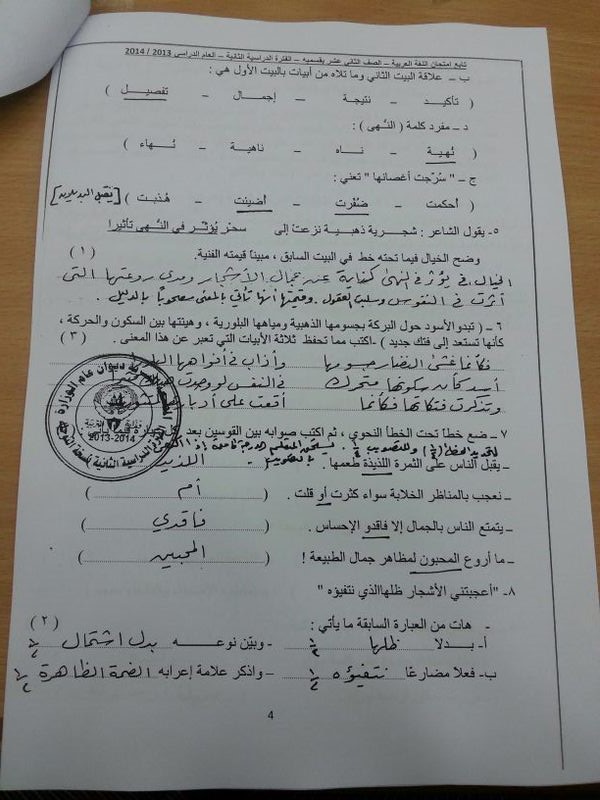 تابع امتحان اللغة العربية – الصف الثاني عشر بقسميه – الفترة الدراسية الثانية – العام الدراسي 2013 / 2014
ب – علاقة البيت الثاني وما تلاه من أبيات بالبيت الأول هي :
( تأكيد – نتيجة – إجمال – تفصيل )
د – مفرد كلمة ( النُهى ) :
( نُهية – ناه – ناهية – نُهاء )
ج – " سُرّجت أغصانها " تعني :
( أحكمت – ضُفّرت – أضيئت – هُذبت )
٥- يقول الشاعر : شجرية ذهبية نزعت إلى سحر يُؤثّر في النُهى تأثيرا
وضح الخيال فيما تحته خط في البيت السابق ، مبيناً قيمته الفنية. ( ١ )
الخيال في يؤثر في النهى كناية عن جمال الأشجار ومدى روعتها التي
أثرت في النفوس وسلبت العقول . وقيمتها أنها تأتي بالمعنى مصحوباً بالدليل .
٦ – ( تبدو الأسود حول البركة بجسومها الذهبية ومياهها البلورية ، وهيئتها بين السكون والحركة ،
كأنها تستعد إلى فتك جديد ) -اكتب مما تحفظ ثلاثة الأبيات التي تعبر عن هذا المعنى . ( ٣ )
فكأنما غشى النضار جسومها وأذاب في أفواهها
أسد كأن سكونها متحرك في النفس لو وجدت
وتذكرت فتكاتها فكأنما أقعت على أدبارها
٧ – ضع خطاً تحت الخطأ النحوي ، ثم اكتب صوابه بين القوسين بعد
ـ يقبل الناس على الثمرة اللذيذة طعمها. اللذيذ
ـ نعجب بالمناظر الخلابة سواء كثرت أو قلت . ( أم )
ـ يتمتع الناس بالجمال إلا فاقدو الإحساس . ( فاقدي )
ـ ما أروع المحبون لمظاهر جمال الطبيعة ! ( المحبين )
٨- "أعجبتني الأشجار ظلهاالذي نتفيؤه "
- هات من العبارة السابقة ما يأتي : ( ٢ )
أ- بدلا ظلها ½ - وبيّن نوعه بدل اشتمال ½
ب- فعلا مضارعًا نتفيؤه ½ – واذكر علامة إعرابه الضمة الظاهرة ½
2013-2014
4